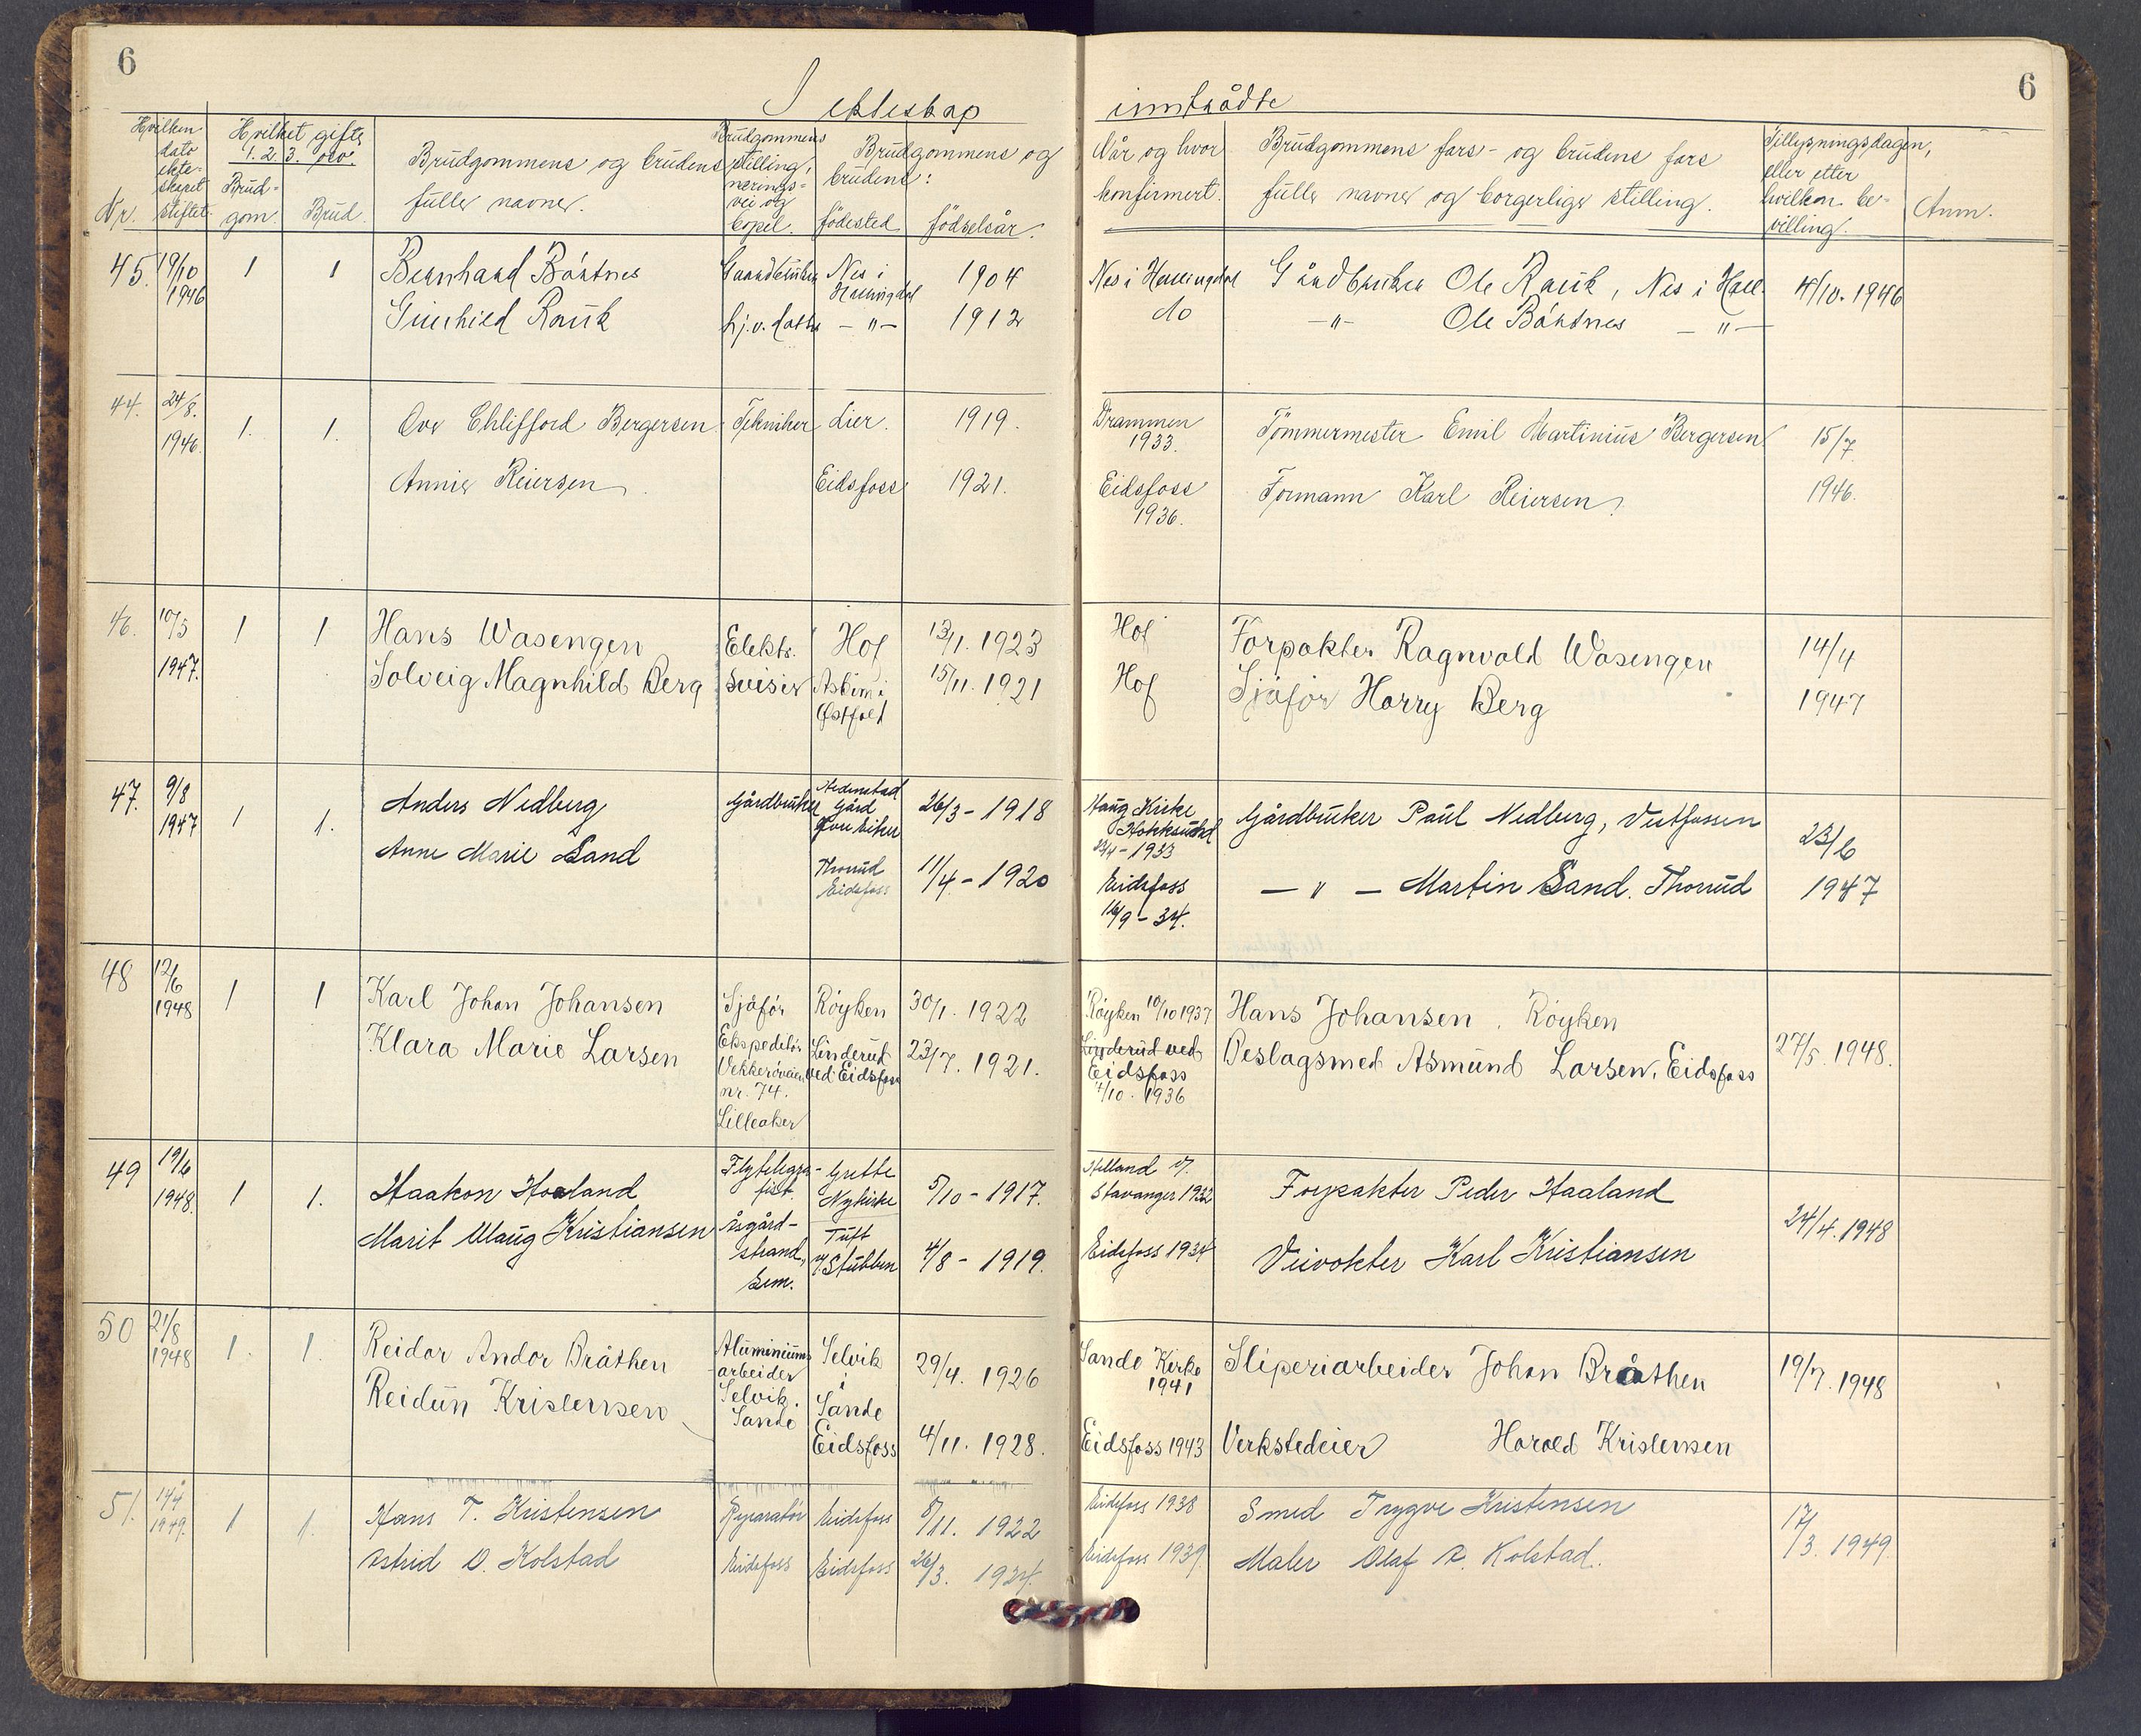 6
6
I ekteskap inntrådte
Nr.
Hvilken dato ekte-skapet stiftet.
Hvilket gifte, 1. 2. 3. osv.
Brud-gom.
Brud.
Brudgommens og brudens fulle navne.
Brudgommens stilling, nærings-vei og bopel.
Brudgommens og brudens:
fødested
fødselsår.
Når og hvor konfirmert.
Brudgommens fars- og brudens fars fulle navne og borgerlige stilling.
Tillysningsdagen, eller etter hvilken be-villing.
Anm.
45. 19/10 1946 1 1 Bernhard Bårtnes Gaardbruker Nes i Hallingdal 1904 Nes i Hallingdal Gårdbruker Ole Rauk, Nes i Hall. 4/10. 1946
Gunhild Rauk hj.v. datter — " — 1912 do — " — Ole Bårtnes — " —
44. 24/8. 1946. 1. 1. Ove Chlifford Bergersen Tekniker Lier. 1919. Drammen 1933. Tømmermester Emil Martinius Bergersen 15/7 1946.
Annie Reiersen Eidsfoss 1921. Eidsfoss 1936. Formann Karl Reiersen.
46. 10/5 1947. 1 1 Hans Wasengen Elektr. Hof 13/1. 1923 Hof Forpakter Ragnvald Wasengen 14/4 1947
Solveig Magnhild Berg sveiser Askim i Østfold 15/11. 1921 Hof Sjåfør Harry Berg
47. 9/8 1947 1 1. Anders Nedberg Gårdbruker Hedenstad Gård Øvre Eiker 26/3 - 1918 Haug Kirke Hokksund 1933 Gårdbruker Paul Nedberg, Vestfossen 23/6 1947
Anne Marie Sand Thorrud Eidsfoss 11/4 - 1920 Eidsfoss 16/9 - 34. — " — Martin Sand. Thorrud
48 12/6 1948 1 1 Karl Johan Johansen Sjåfør Røyken 30/1. 1922 Røyken 10/10 1937 Hans Johansen, Røyken 27/5 1948.
Klara Marie Larsen Ekspeditør Vekkerøveien nr. 74. Lilleaker Linderud ved Eidsfoss 23/7. 1921. Linderud ved Eidsfoss 4/10. 1936 Beslagsmed Asmund Larsen, Eidsfoss
49 19/6 1948. 1 1. Haakon Haaland Flytelegra-fist. Grette Nykirke 5/10 - 1917. Stavanger 1932 Forpakter Peder Haaland 24/4. 1948
Marit Maug Kristiansen Åsgård-strand, Sem. Tuft v/Stubben 4/8 - 1919. Eidsfoss 1934 Veivokter Karl Kristiansen
50 21/8 1948 1. 1. Reidar Andor Bråthen Aluminiums arbeider Selvik. Sande Selvik i Sande 29/4. 1926 Sande Kirke 1941 Sliperiarbeider Johan Bråthen 19/7. 1948
Reidun Kristensen Eidsfoss 4/11. 1928. Eidsfoss 1943 Verkstedeier Harald Kristensen
51. 14/4 1949. 1 1. Hans T. Kristensen Reparatør Eidsfoss 8/11. 1922 Eidsfoss 1938 Smed Trygve Kristensen 17/3. 1949.
Astrid O. Kolstad Eidsfoss Eidsfoss 26/3. 1924. Eidsfoss 1939. Maler Olaf A. Kolstad.